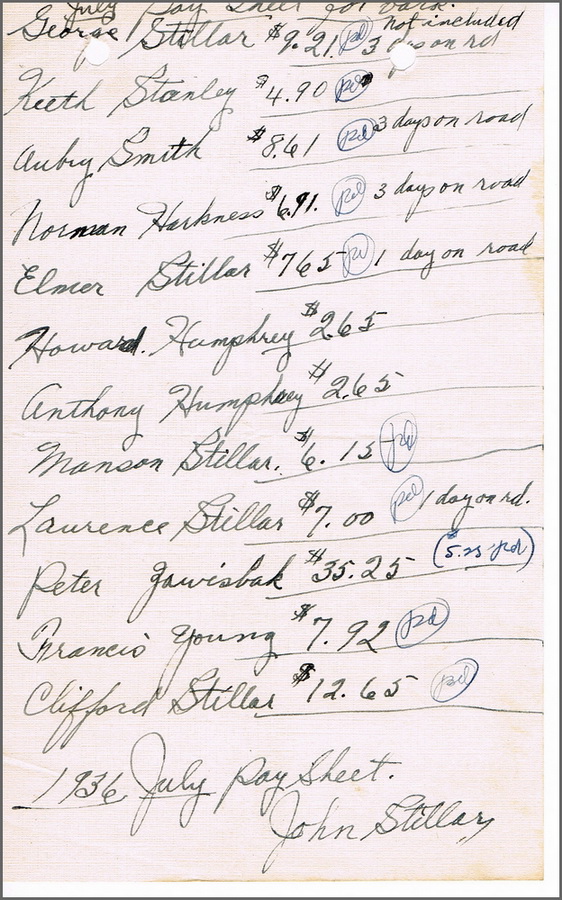 July Pay Sheet for
George Stillar $9.21 pd 3 days on rd not included
Keith Stanley $4.90 pd
Aubry Smith $8.61 pd 3 days on road
Norman Harkness $6.91. pd 3 days on road
Elmer Stillar $765 pd 1 day on road
Howard. Humphrey $265
Anthony Humphrey $2.65
Manson Stillar. $6.15 pd
Laurence Stillar $7.00 pd 1 day on rd.
Peter Gawisbak $35.25 ($5.25 pd)
Francis Young $7.92 pd
Clifford Stillar $12.65 pd
1936 July Pay Sheet.
John Stillar